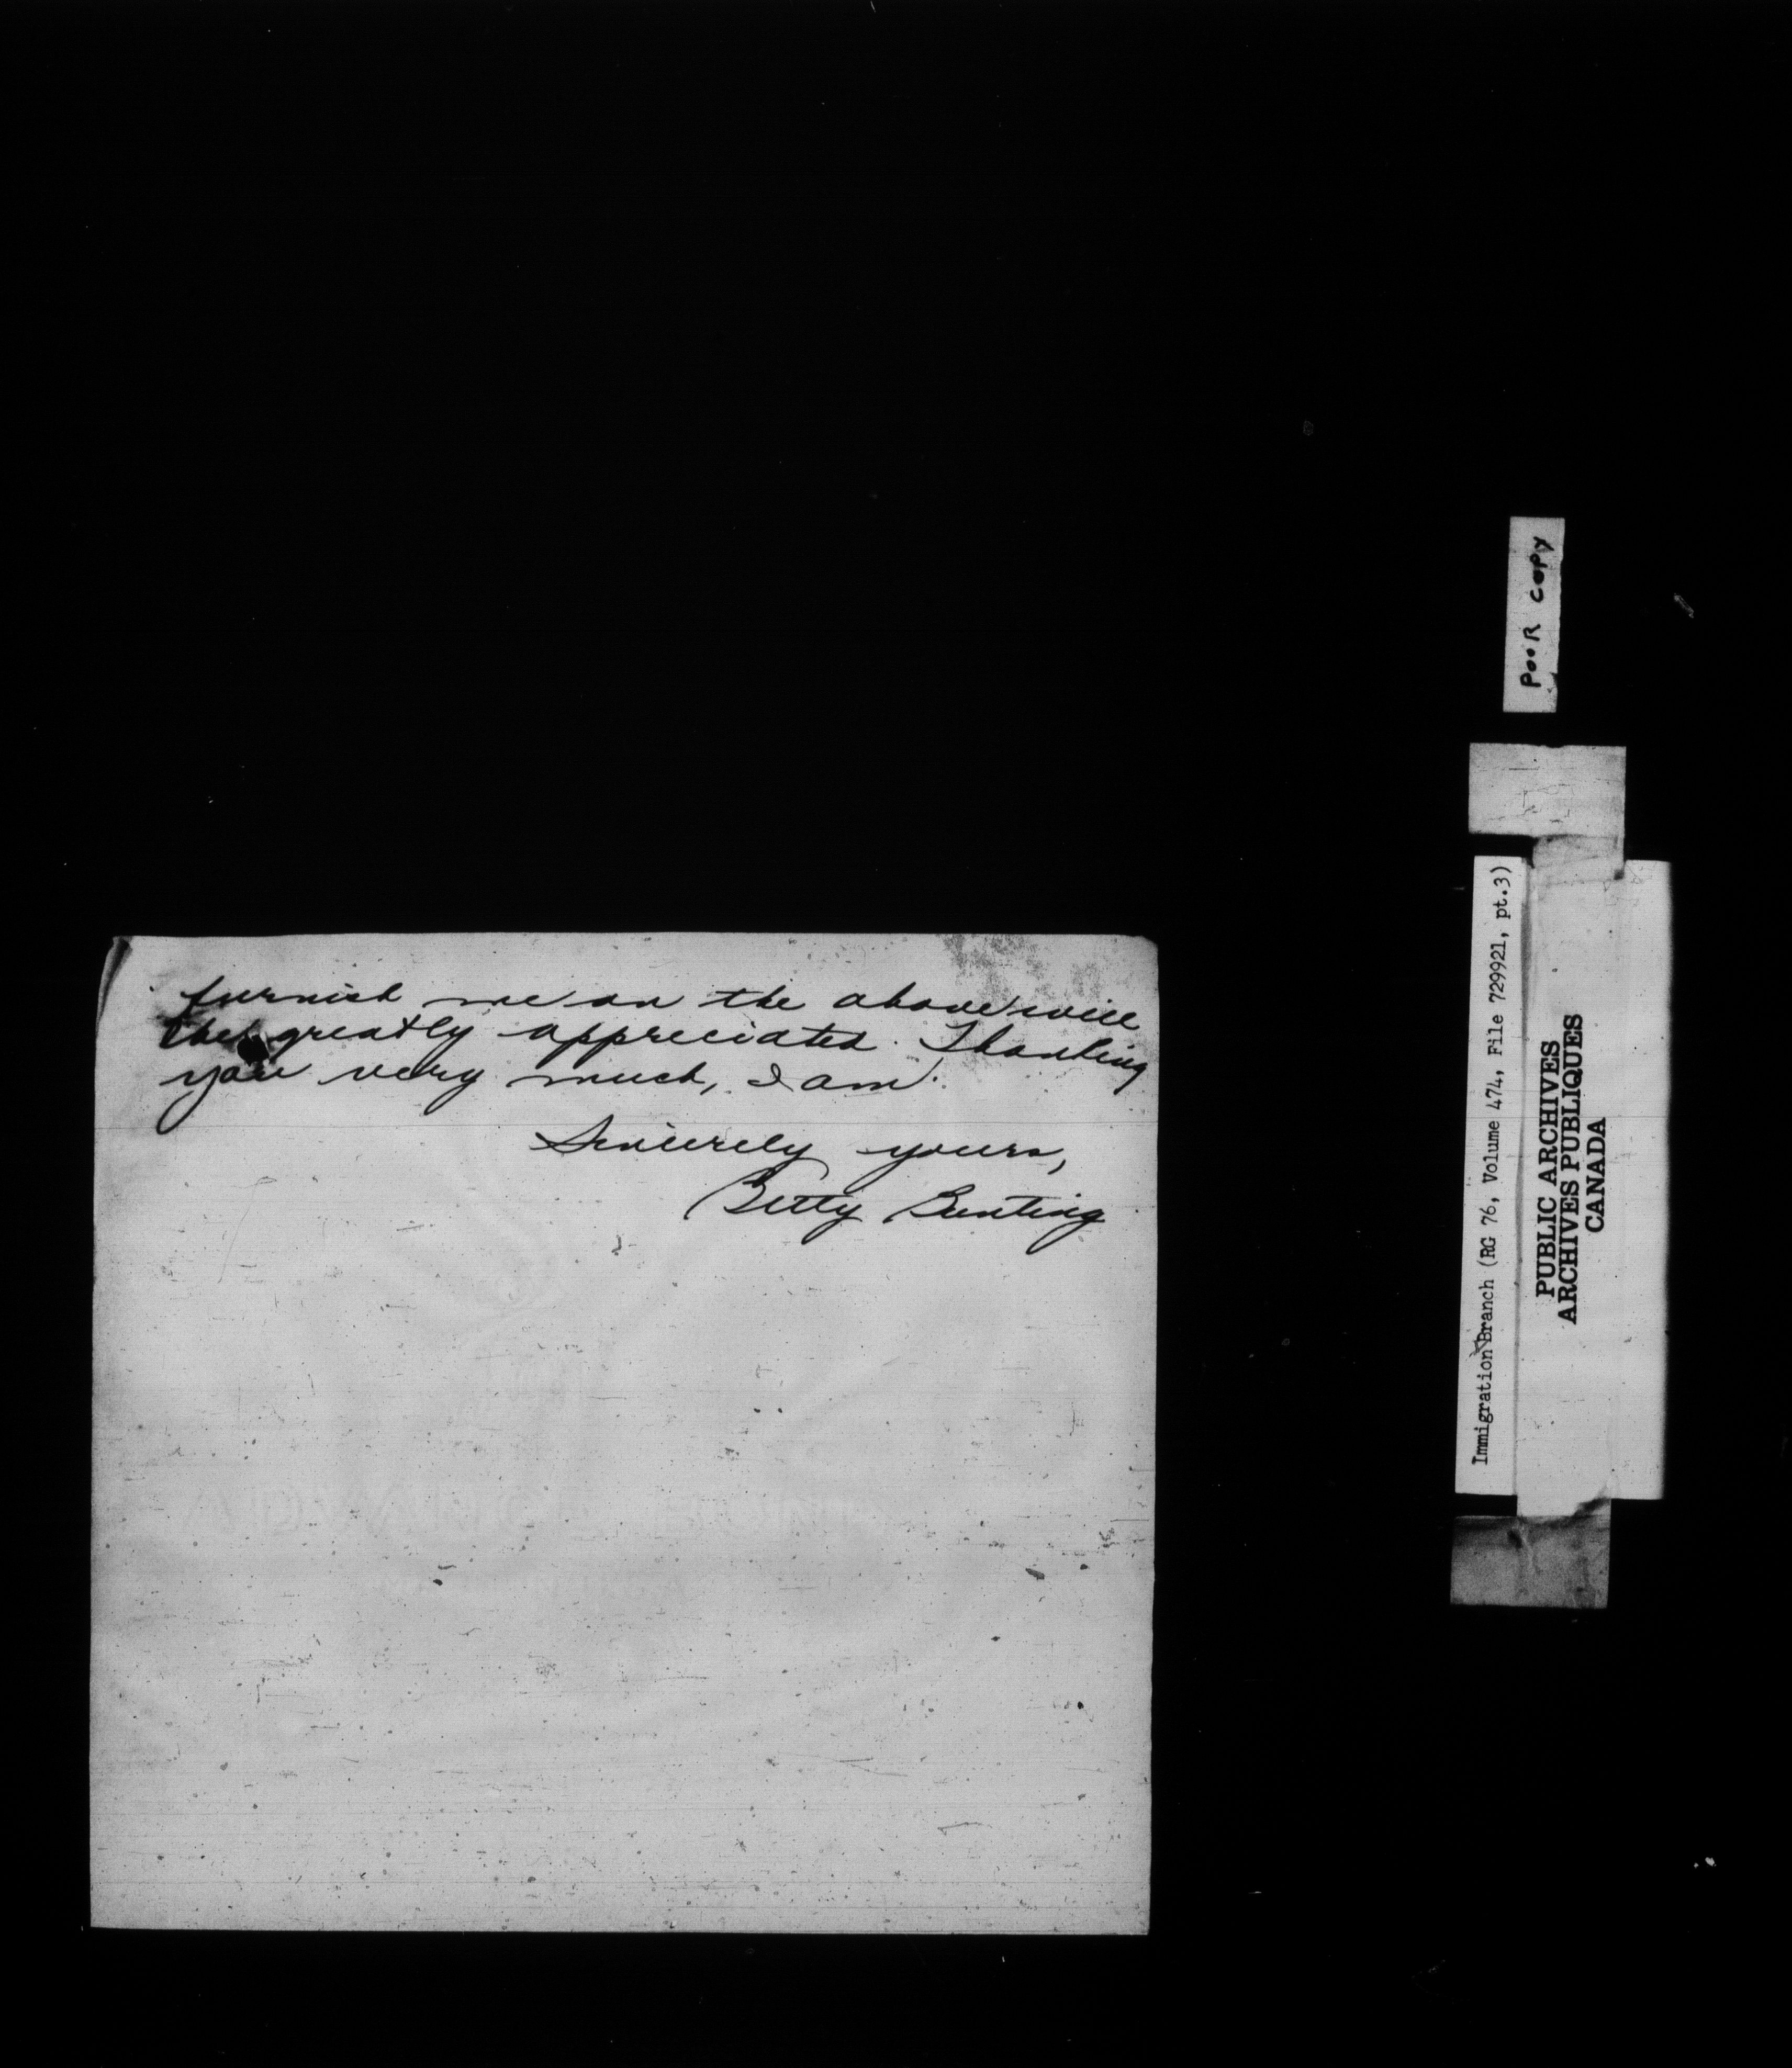 furnish me on the above will
be greatly appreciated. Thanking
you very much, I am.
Sincerely yours,
Betty Bunting
POOR COPY
Immigration Branch (RG 76, Volume 474, File 729921, pt.3)
PUBLIC ARCHIVES
ARCHIVES PUBLIQUES
CANADA